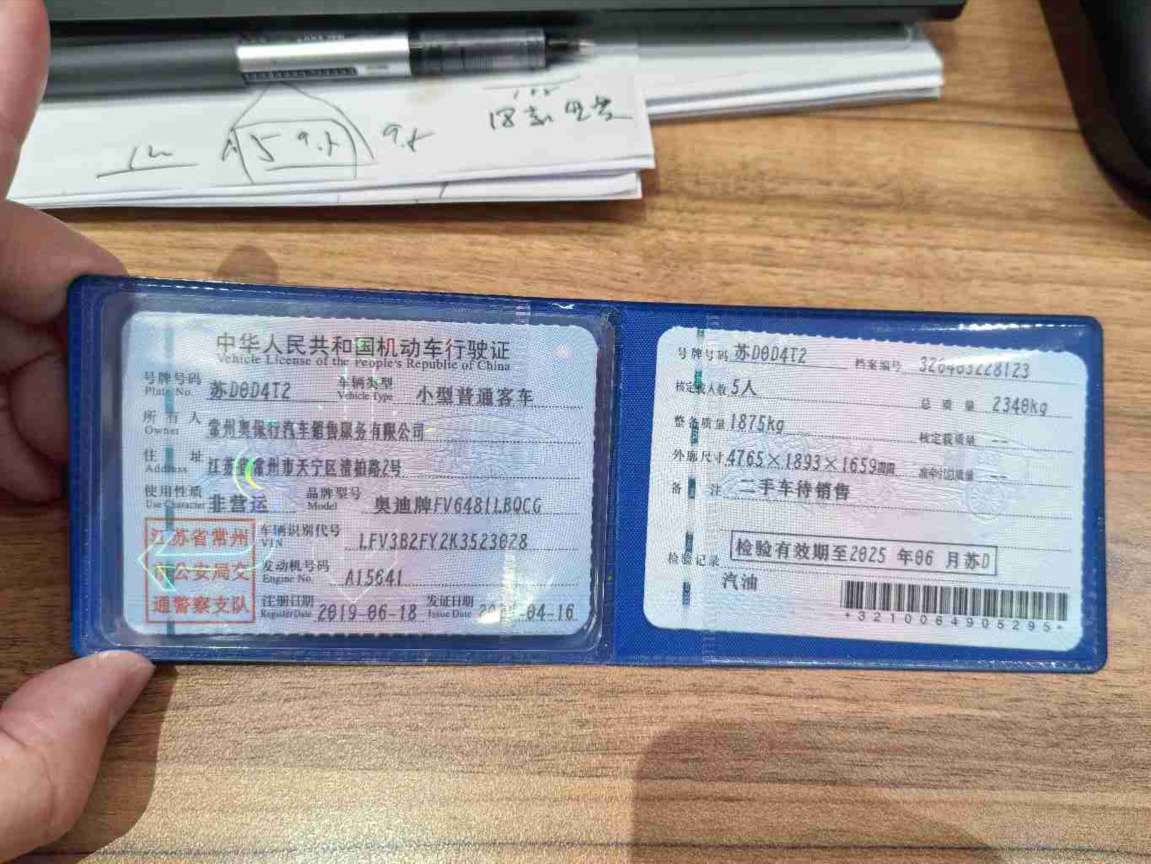 12
5 9.f
9.f
中华人民共和国机动车行驶证
Vehicle License of the People's Republic of China
号牌号码 苏D0D4T2 车辆类型 小型普通客车
Plate No. Vehicle Type
所有人 常州奥保行汽车销售服务有限公司
Owner
住址 江苏省常州市天宁区清柏路2号
Address
使用性质 非营运 品牌型号 奥迪牌FV6481LBQCG
Use Character Model
江苏省常州
市公安局交
通警察支队
车辆识别代号 LFV3B2FY2K3523028
VIN
发动机号码 A15641
Engine No.
注册日期 2019-06-18 发证日期 04-16
Register Date Issue Date
号牌号码 苏D0D4T2 档案编号 320403228123
核定载人数 5人 总质量 2340kg
整备质量 1875kg 核定载质量 --
外廓尺寸 4765×1893×1659mm 准牵引总质量 --
备注 二手车待销售
检验记录 检验有效期至2025 年06 月苏D
汽油
*3210064905295*